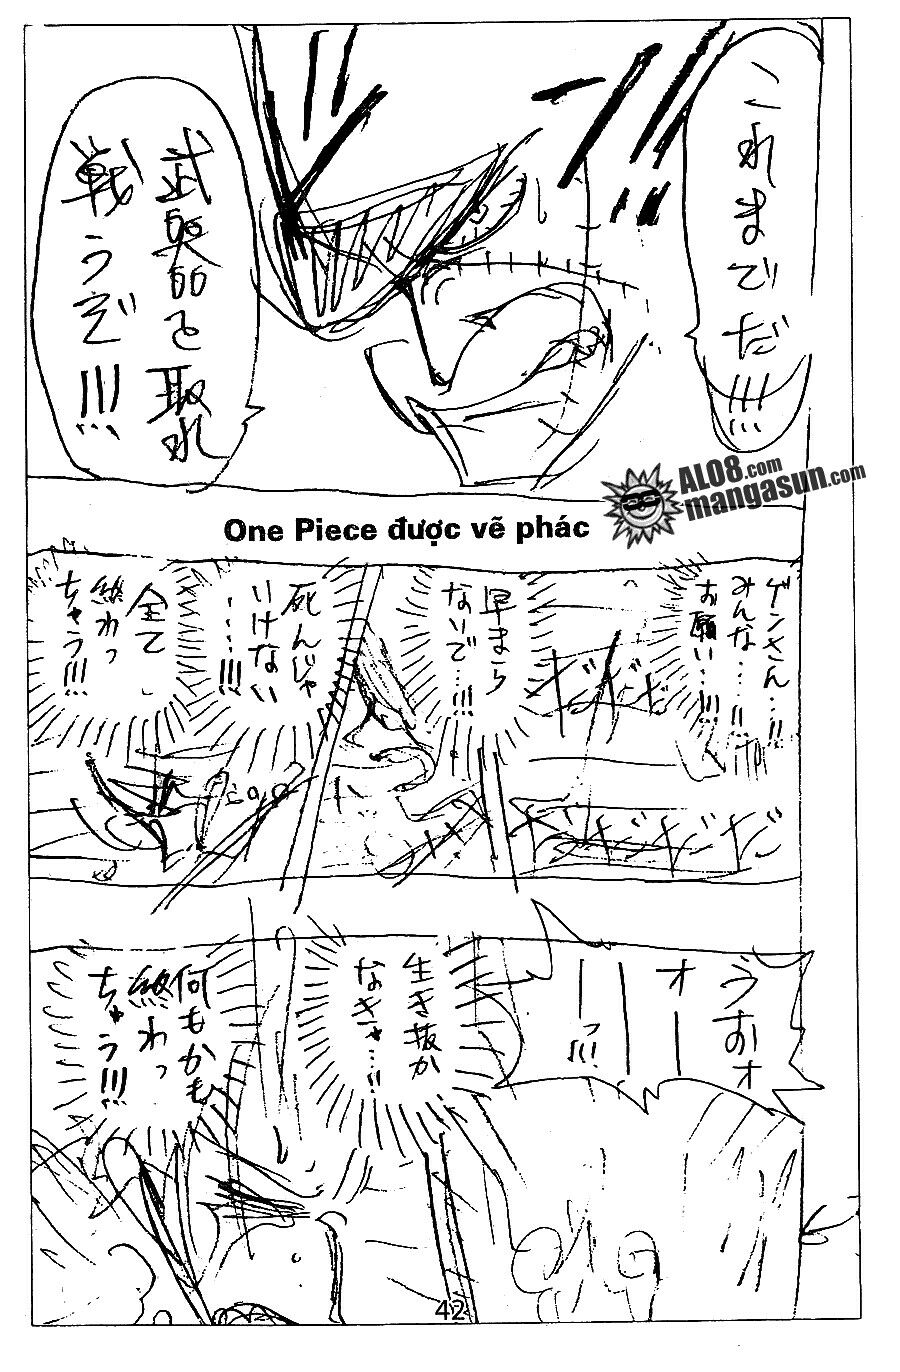 これまでだ!!!
武器を取れ
戦うぞ!!!
AL08.com
mangasun.com
One Piece được vẽ phác
ゲンさん…!!
みんな…!!
お願い…!!!
早まら
ないで…!!!
死んじゃ
いけない
……!!!
全て
終わっ
ちゃう!!!
ダダダ
ダダダダダ
うおォ
オーー
ーーッ!!!
生き抜か
なきゃ…!!
何もかも
終わっ
ちゃう!!!
42